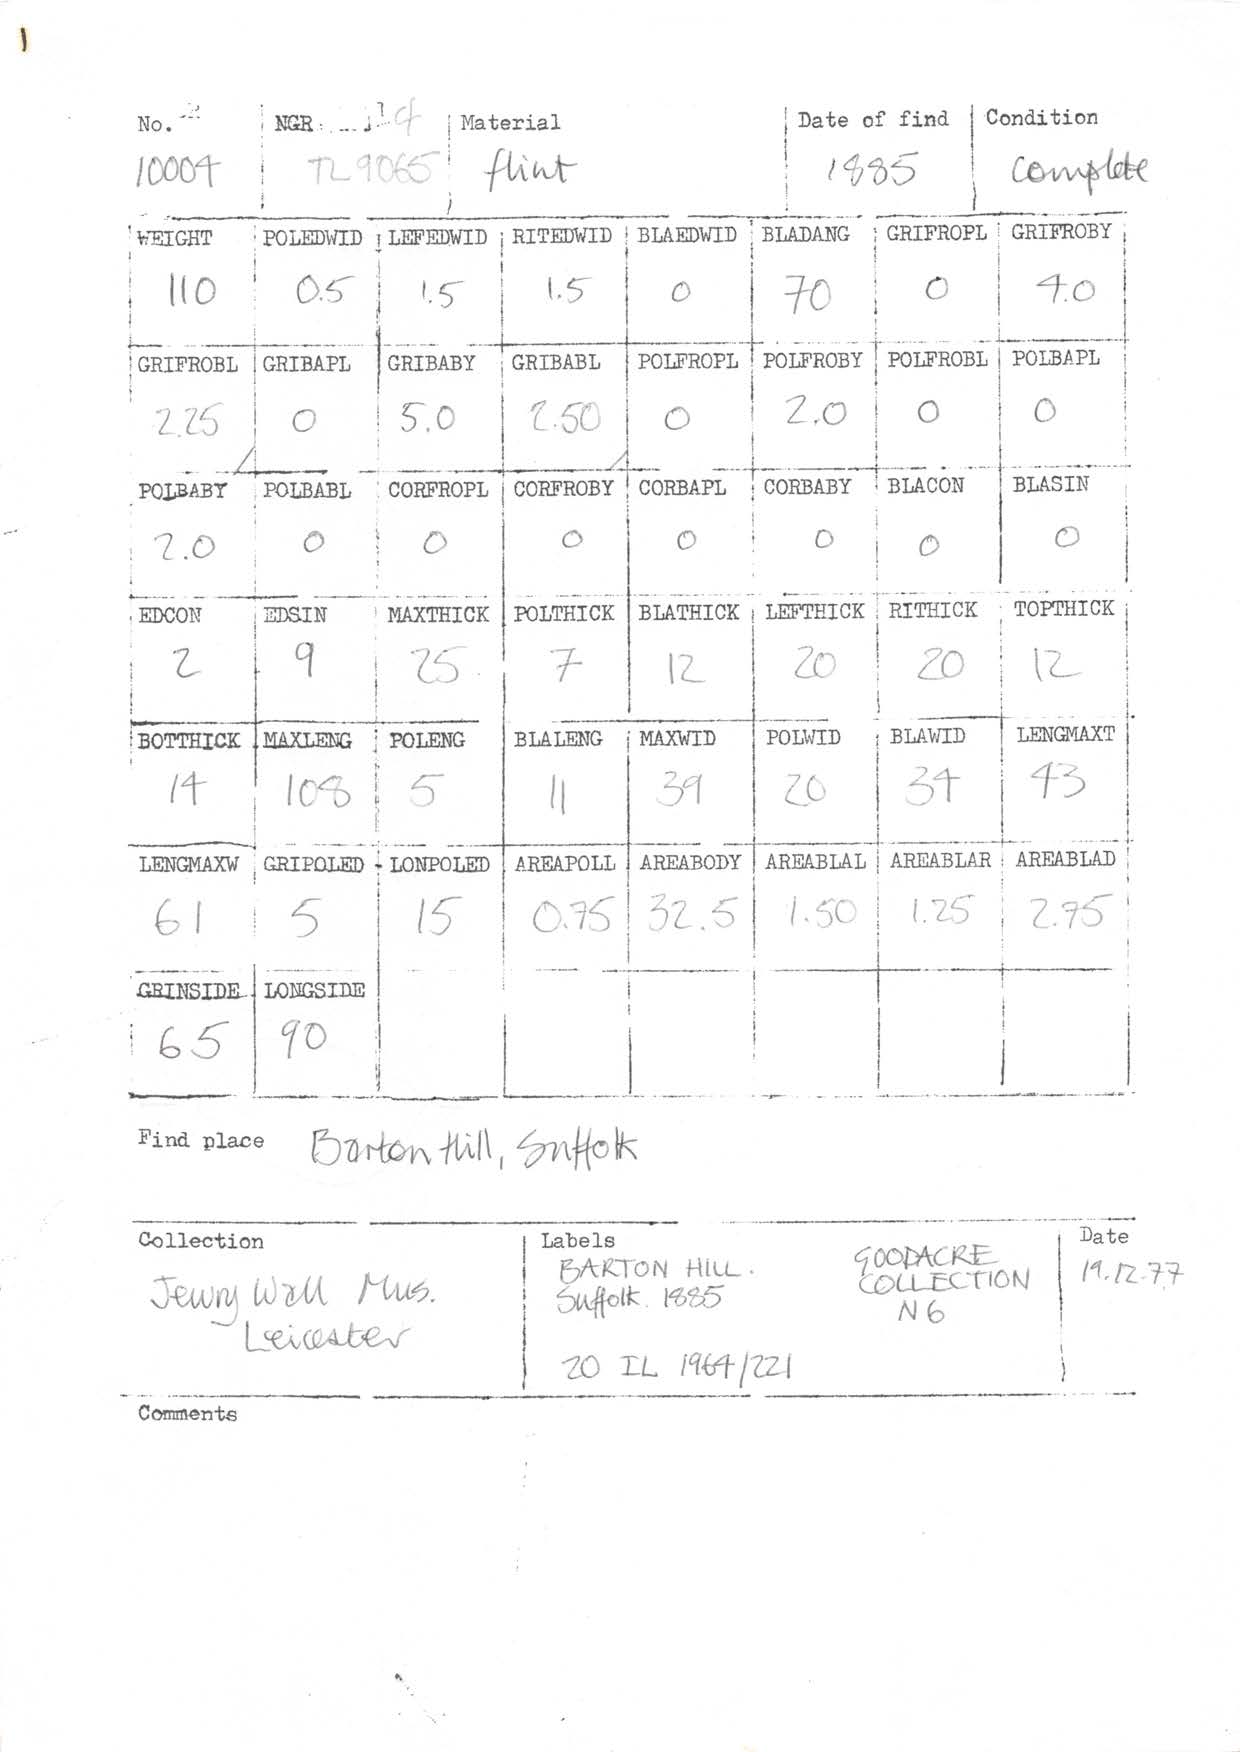 1
No. NGR Material Date of find Condition
10004 TL9065 flint 1885 complete
WEIGHT POLEDWID LEFEDWID RITEDWID BLAEDWID BLADANG GRIFROPL GRIFROBY
110 0.5 1.5 1.5 0 70 0 4.0
GRIFROBL GRIBAPL GRIBABY GRIBABL POLFROPL POLFROBY POLFROBL POLBAPL
2.25 0 5.0 2.50 0 2.0 0 0
POLBABY POLBABL CORFROPL CORFROBY CORBAPL CORBABY BLACON BLASIN
2.0 0 0 0 0 0 0 0
EDCON EDSIN MAXTHICK POLTHICK BLATHICK LEFTHICK RITHICK TOPTHICK
2 9 25 7 12 20 20 12
BOTTHICK MAXLENG POLENG BLALENG MAXWID POLWID BLAWID LENGMAXT
14 108 5 11 39 20 34 43
LENGMAXW GRIPOLED LONPOLED AREAPOLL AREABODY AREABLAL AREABLAR AREABLAD
61 5 15 0.75 32.5 1.50 1.25 2.75
GRINSIDE LONGSIDE
65 90
Find place Barton Hill, Suffolk
Collection Labels Date
Jewry Wall Mus. BARTON HILL. GOODACRE 19.12.77
Leicester Suffolk. 1885 COLLECTION
N6
20 IL 1964/221
Comments